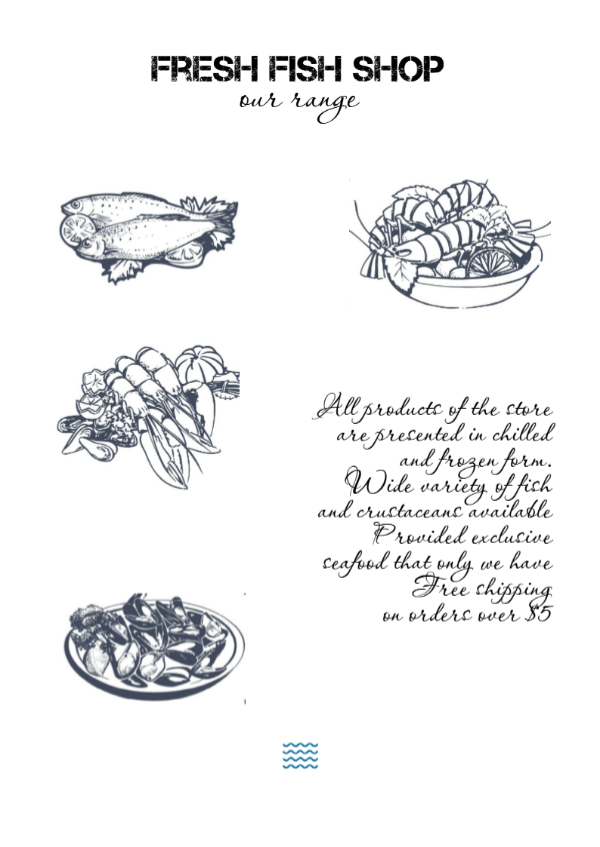 FRESH FISH SHOP
our range
All products of the store
are presented in chilled
and frozen form.
Wide variety of fish
and crustaceans available
Provided exclusive
seafood that only we have
Free shipping
on orders over $5